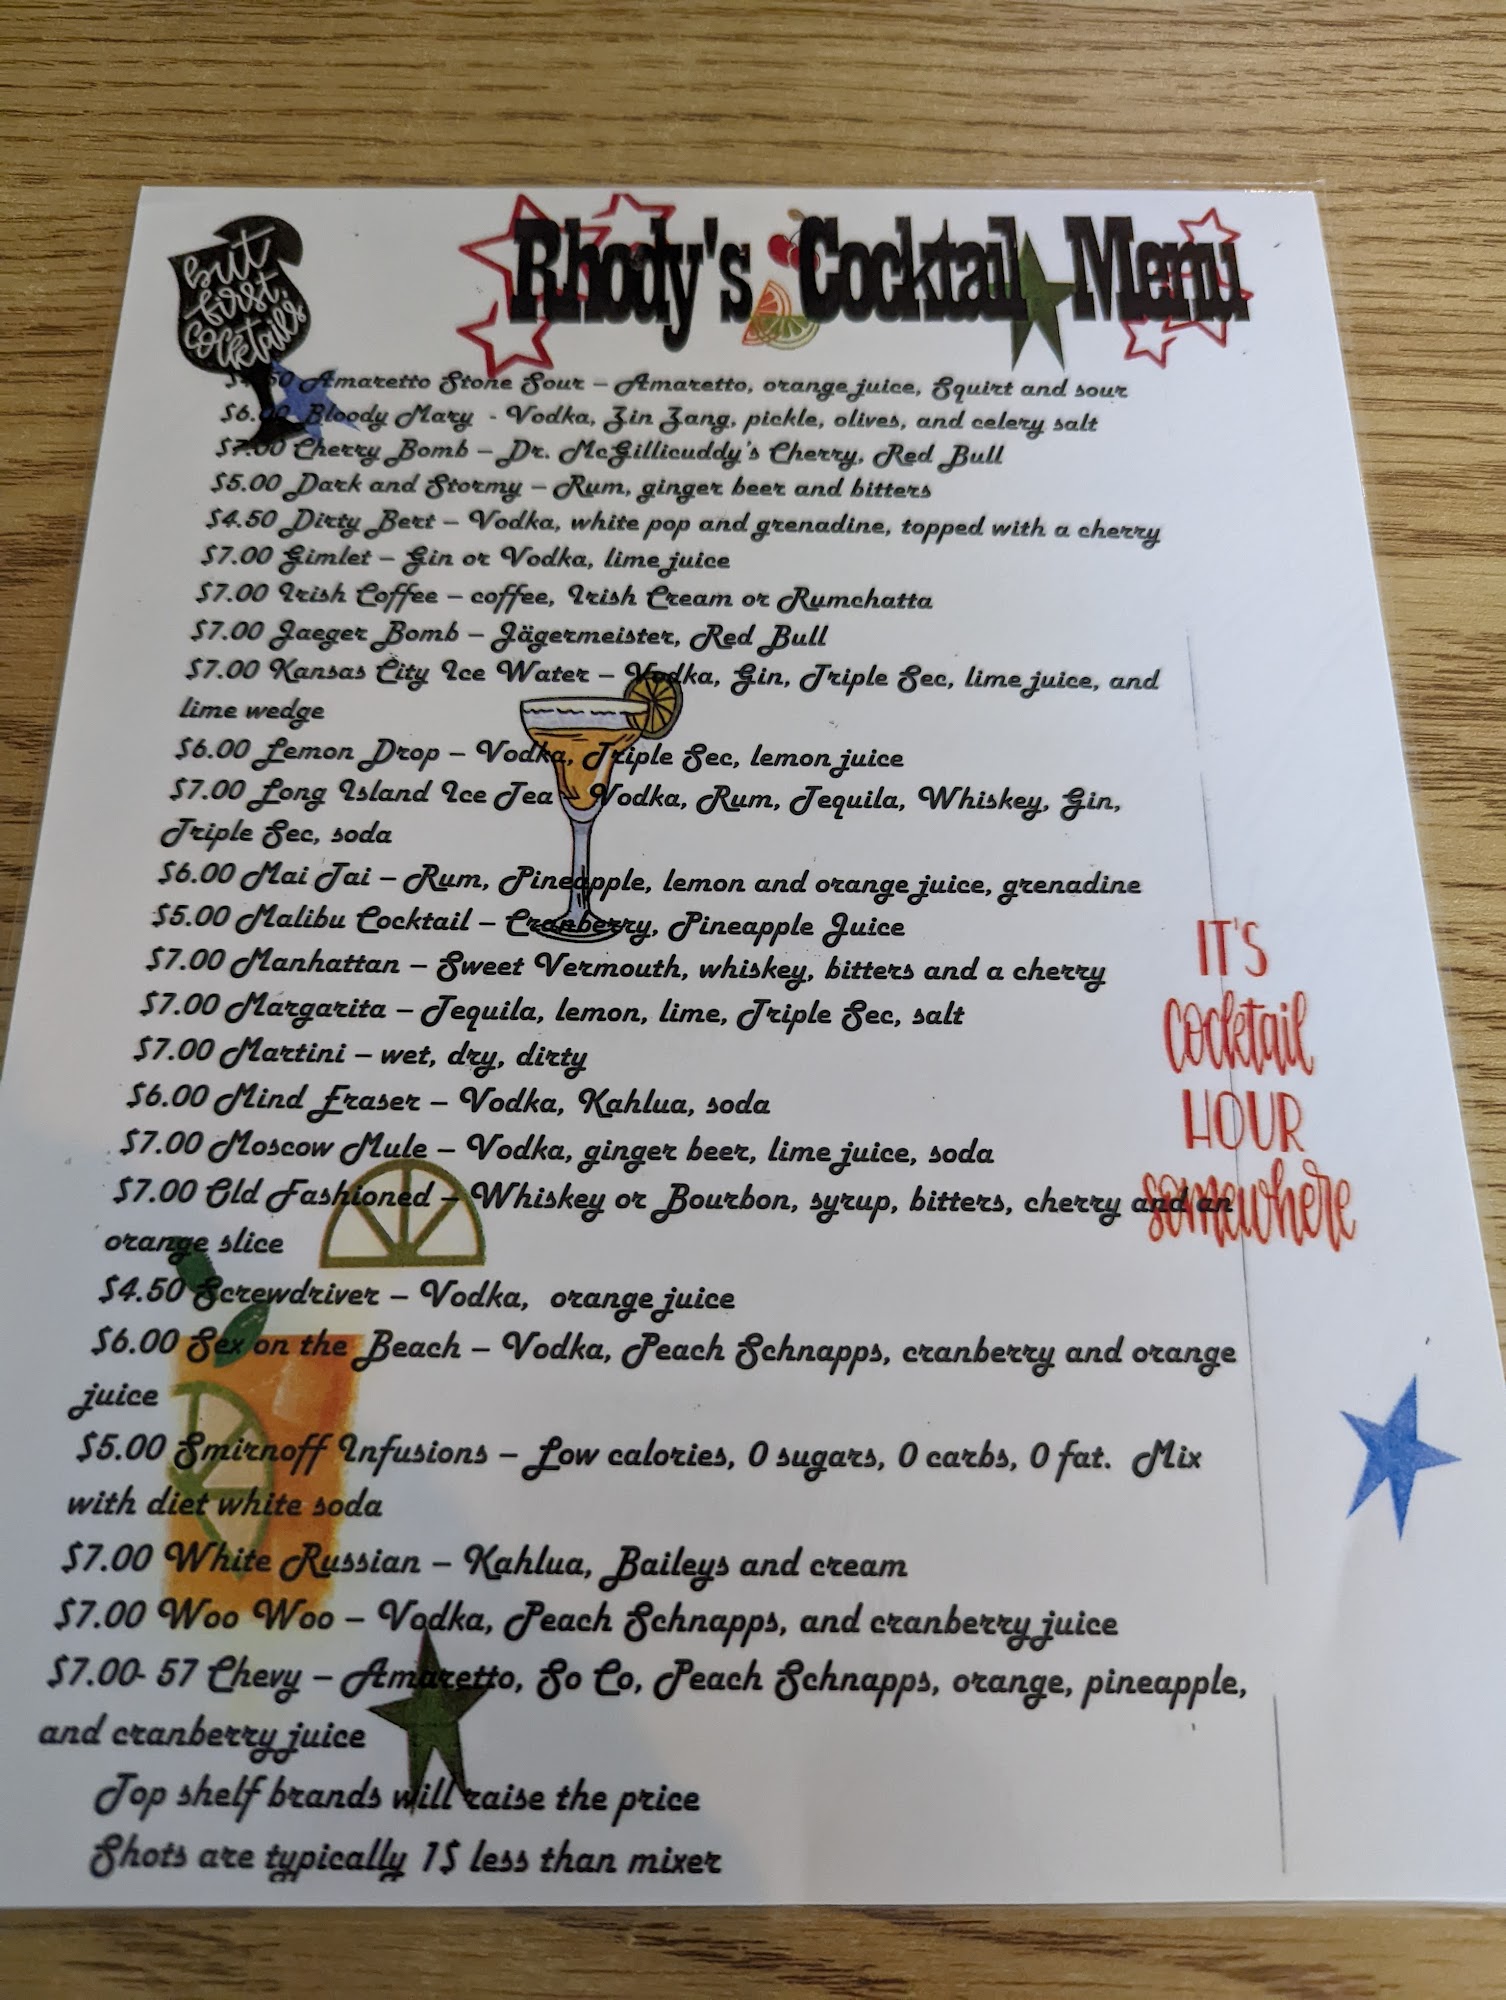 but
first,
cocktails
Rhody's Cocktail Menu
Amaretto Stone Sour – Amaretto, orange juice, Squirt and sour
$6.00 Bloody Mary - Vodka, Zin Zang, pickle, olives, and celery salt
$7.00 Cherry Bomb – Dr. McGillicuddy's Cherry, Red Bull
$5.00 Dark and Stormy – Rum, ginger beer and bitters
$4.50 Dirty Bert – Vodka, white pop and grenadine, topped with a cherry
$7.00 Gimlet – Gin or Vodka, lime juice
$7.00 Irish Coffee – coffee, Irish Cream or Rumchatta
$7.00 Jaeger Bomb – Jägermeister, Red Bull
$7.00 Kansas City Ice Water – Vodka, Gin, Triple Sec, lime juice, and
lime wedge
$6.00 Lemon Drop – Vodka, Triple Sec, lemon juice
$7.00 Long Island Ice Tea – Vodka, Rum, Tequila, Whiskey, Gin,
Triple Sec, soda
$6.00 Mai Tai – Rum, Pineapple, lemon and orange juice, grenadine
$5.00 Malibu Cocktail – Cranberry, Pineapple Juice
$7.00 Manhattan – Sweet Vermouth, whiskey, bitters and a cherry
$7.00 Margarita – Tequila, lemon, lime, Triple Sec, salt
$7.00 Martini – wet, dry, dirty
$6.00 Mind Eraser – Vodka, Kahlua, soda
$7.00 Moscow Mule – Vodka, ginger beer, lime juice, soda
$7.00 Old Fashioned – Whiskey or Bourbon, syrup, bitters, cherry and an
orange slice
$4.50 Screwdriver – Vodka, orange juice
$6.00 Sex on the Beach – Vodka, Peach Schnapps, cranberry and orange
juice
$5.00 Smirnoff Infusions – Low calories, 0 sugars, 0 carbs, 0 fat. Mix
with diet white soda
$7.00 White Russian – Kahlua, Baileys and cream
$7.00 Woo Woo – Vodka, Peach Schnapps, and cranberry juice
$7.00- 57 Chevy – Amaretto, So Co, Peach Schnapps, orange, pineapple,
and cranberry juice
Top shelf brands will raise the price
Shots are typically 1$ less than mixer
IT'S
cocktail
HOUR
somewhere